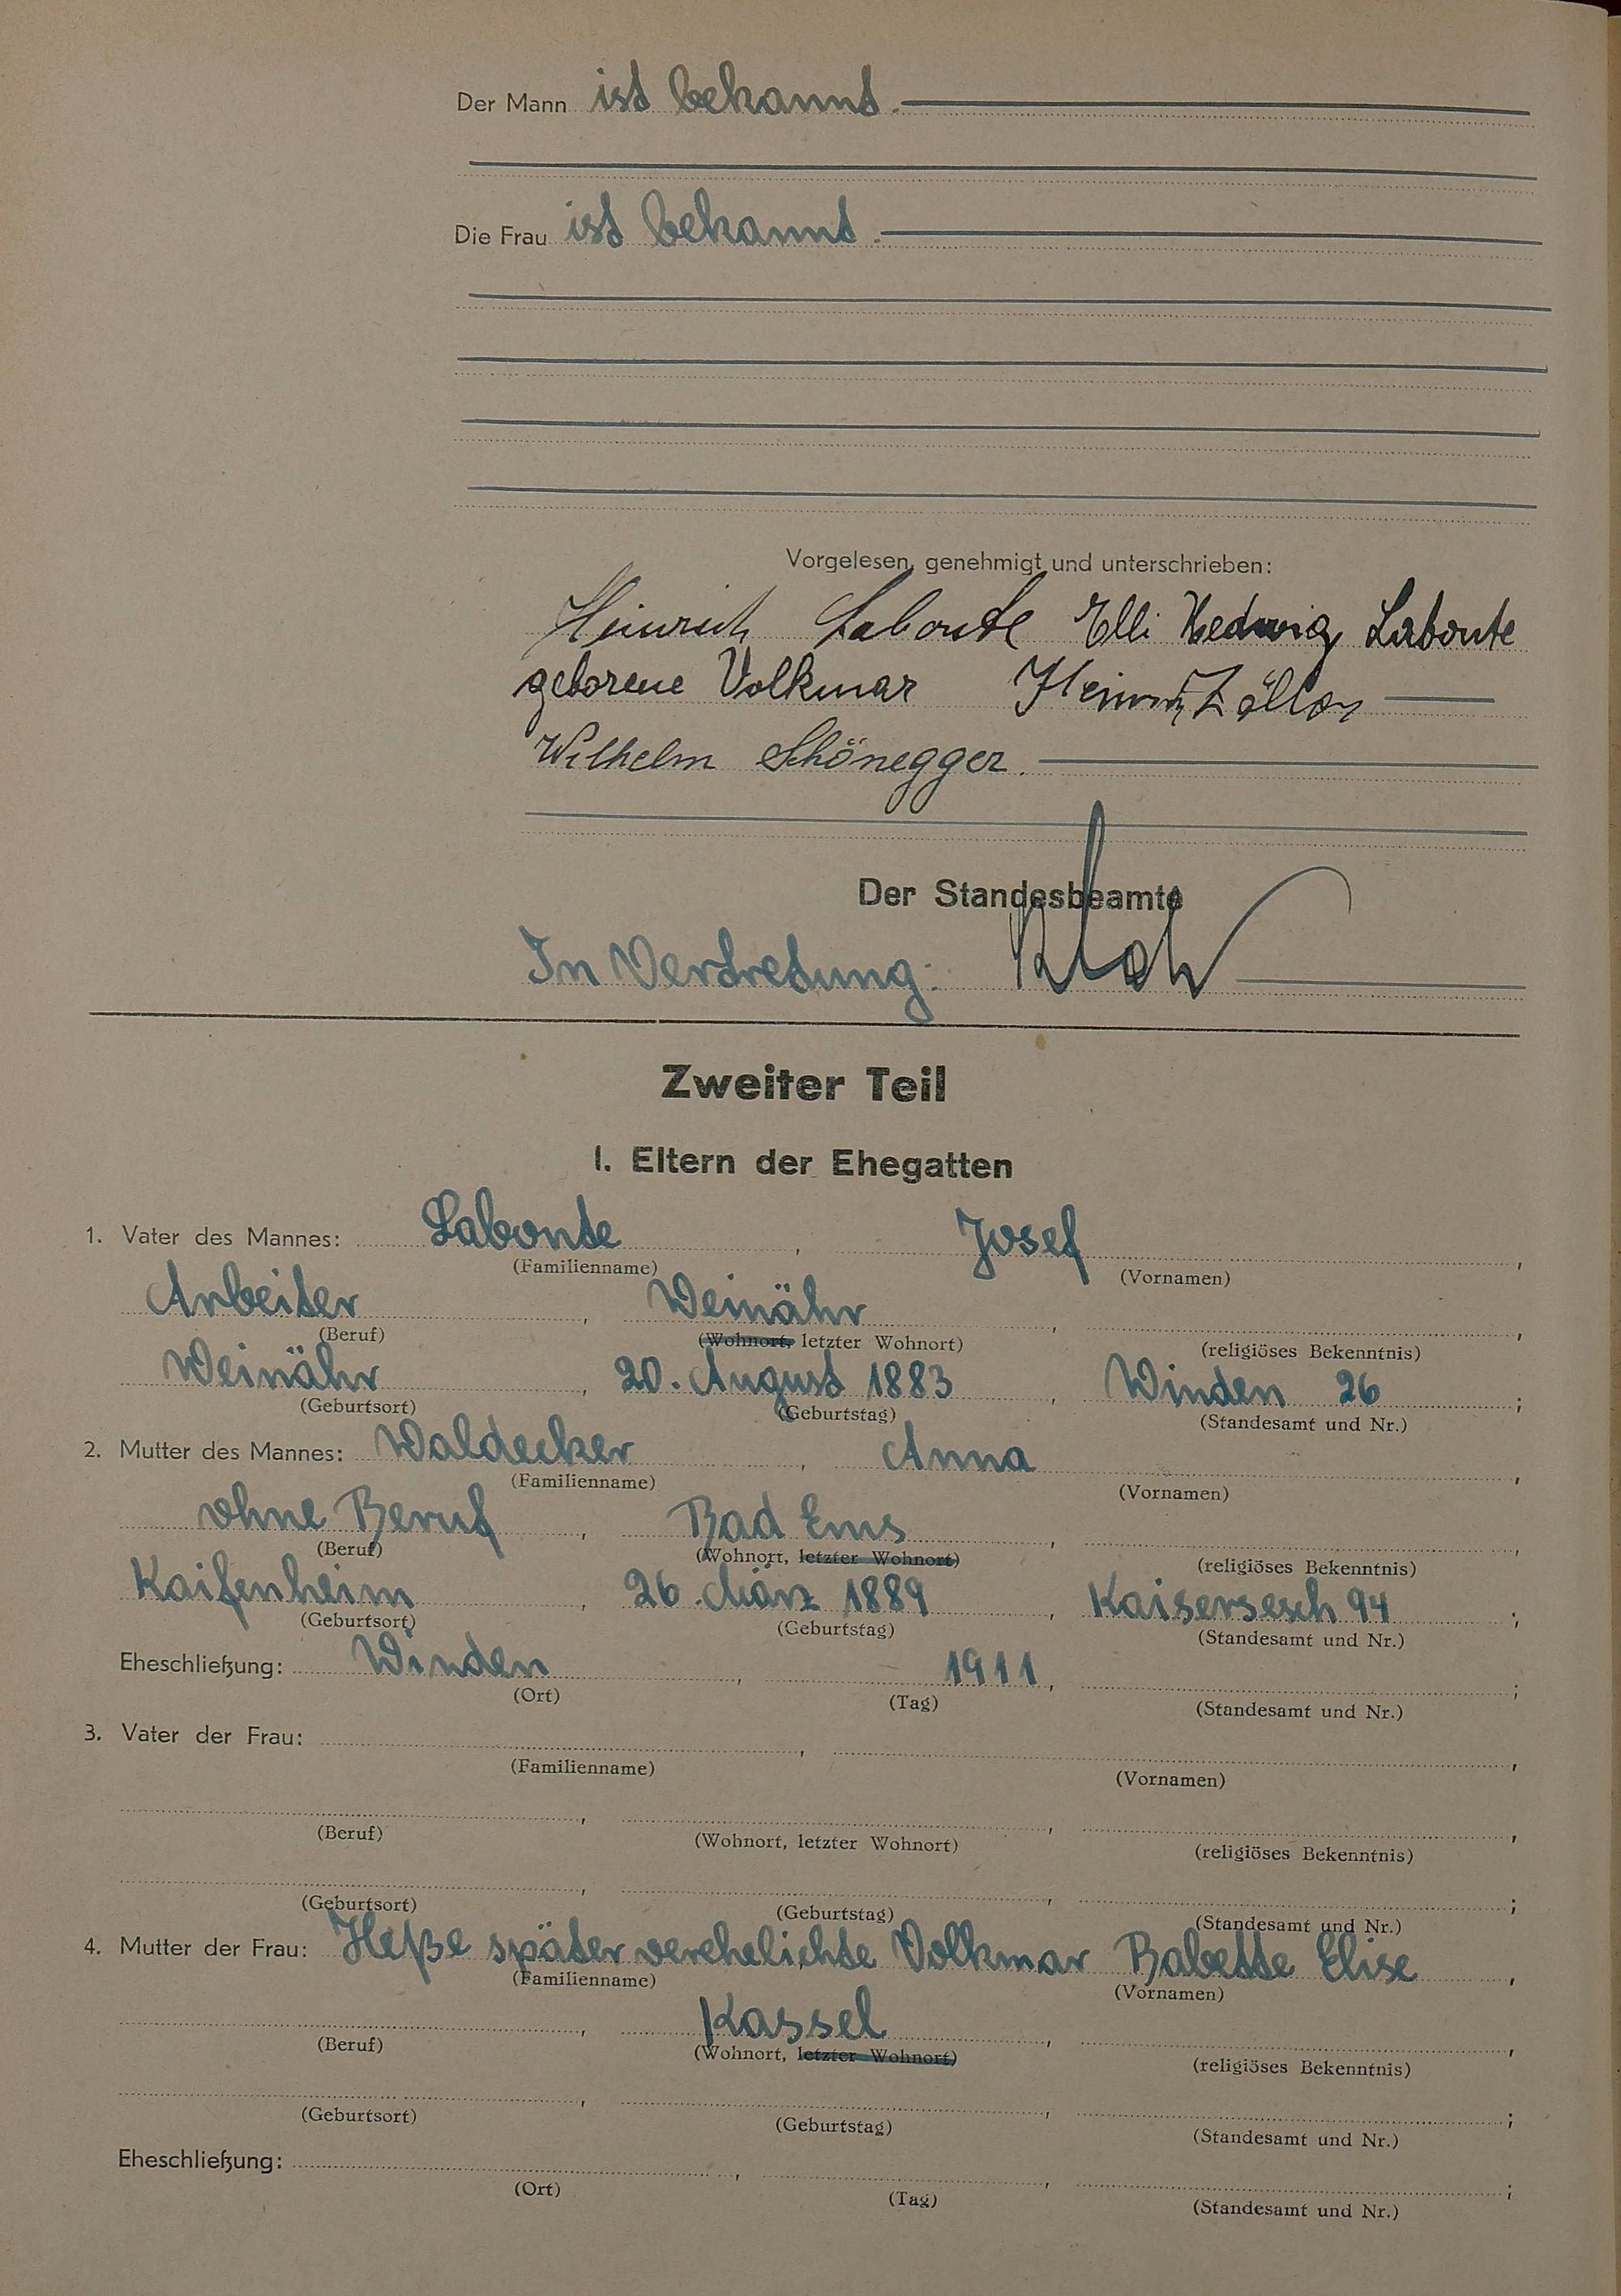 Der Mann ist bekannt.
Die Frau ist bekannt.
Vorgelesen, genehmigt und unterschrieben:
Heinrich Labonte Elli Hedwig Labonte
geborene Volkmar Heinrich
Wilhelm Schönegger.
Der Standesbeamte
In Vertretung:
Zweiter Teil
I. Eltern der Ehegatten
1. Vater des Mannes: Labonte, Josef,
(Familienname) (Vornamen)
Arbeiter, Weinähr, ,
(Beruf) (Wohnort, letzter Wohnort) (religiöses Bekenntnis)
Weinähr, 20. August 1883, Winden 26;
(Geburtsort) (Geburtstag) (Standesamt und Nr.)
2. Mutter des Mannes: Waldecker, Anna,
(Familienname) (Vornamen)
ohne Beruf, Bad Ems, ,
(Beruf) (Wohnort, letzter Wohnort) (religiöses Bekenntnis)
Kaifenheim, 26. März 1889, Kaisersesch 94;
(Geburtsort) (Geburtstag) (Standesamt und Nr.)
Eheschließung: Winden, 1911, ;
(Ort) (Tag) (Standesamt und Nr.)
3. Vater der Frau: , ,
(Familienname) (Vornamen)
, , ,
(Beruf) (Wohnort, letzter Wohnort) (religiöses Bekenntnis)
, , ;
(Geburtsort) (Geburtstag) (Standesamt und Nr.)
4. Mutter der Frau: Heße später verehelichte Volkmar Babette Elise,
(Familienname) (Vornamen)
, Kassel, ,
(Beruf) (Wohnort, letzter Wohnort) (religiöses Bekenntnis)
, , ;
(Geburtsort) (Geburtstag) (Standesamt und Nr.)
Eheschließung: , , ;
(Ort) (Tag) (Standesamt und Nr.)